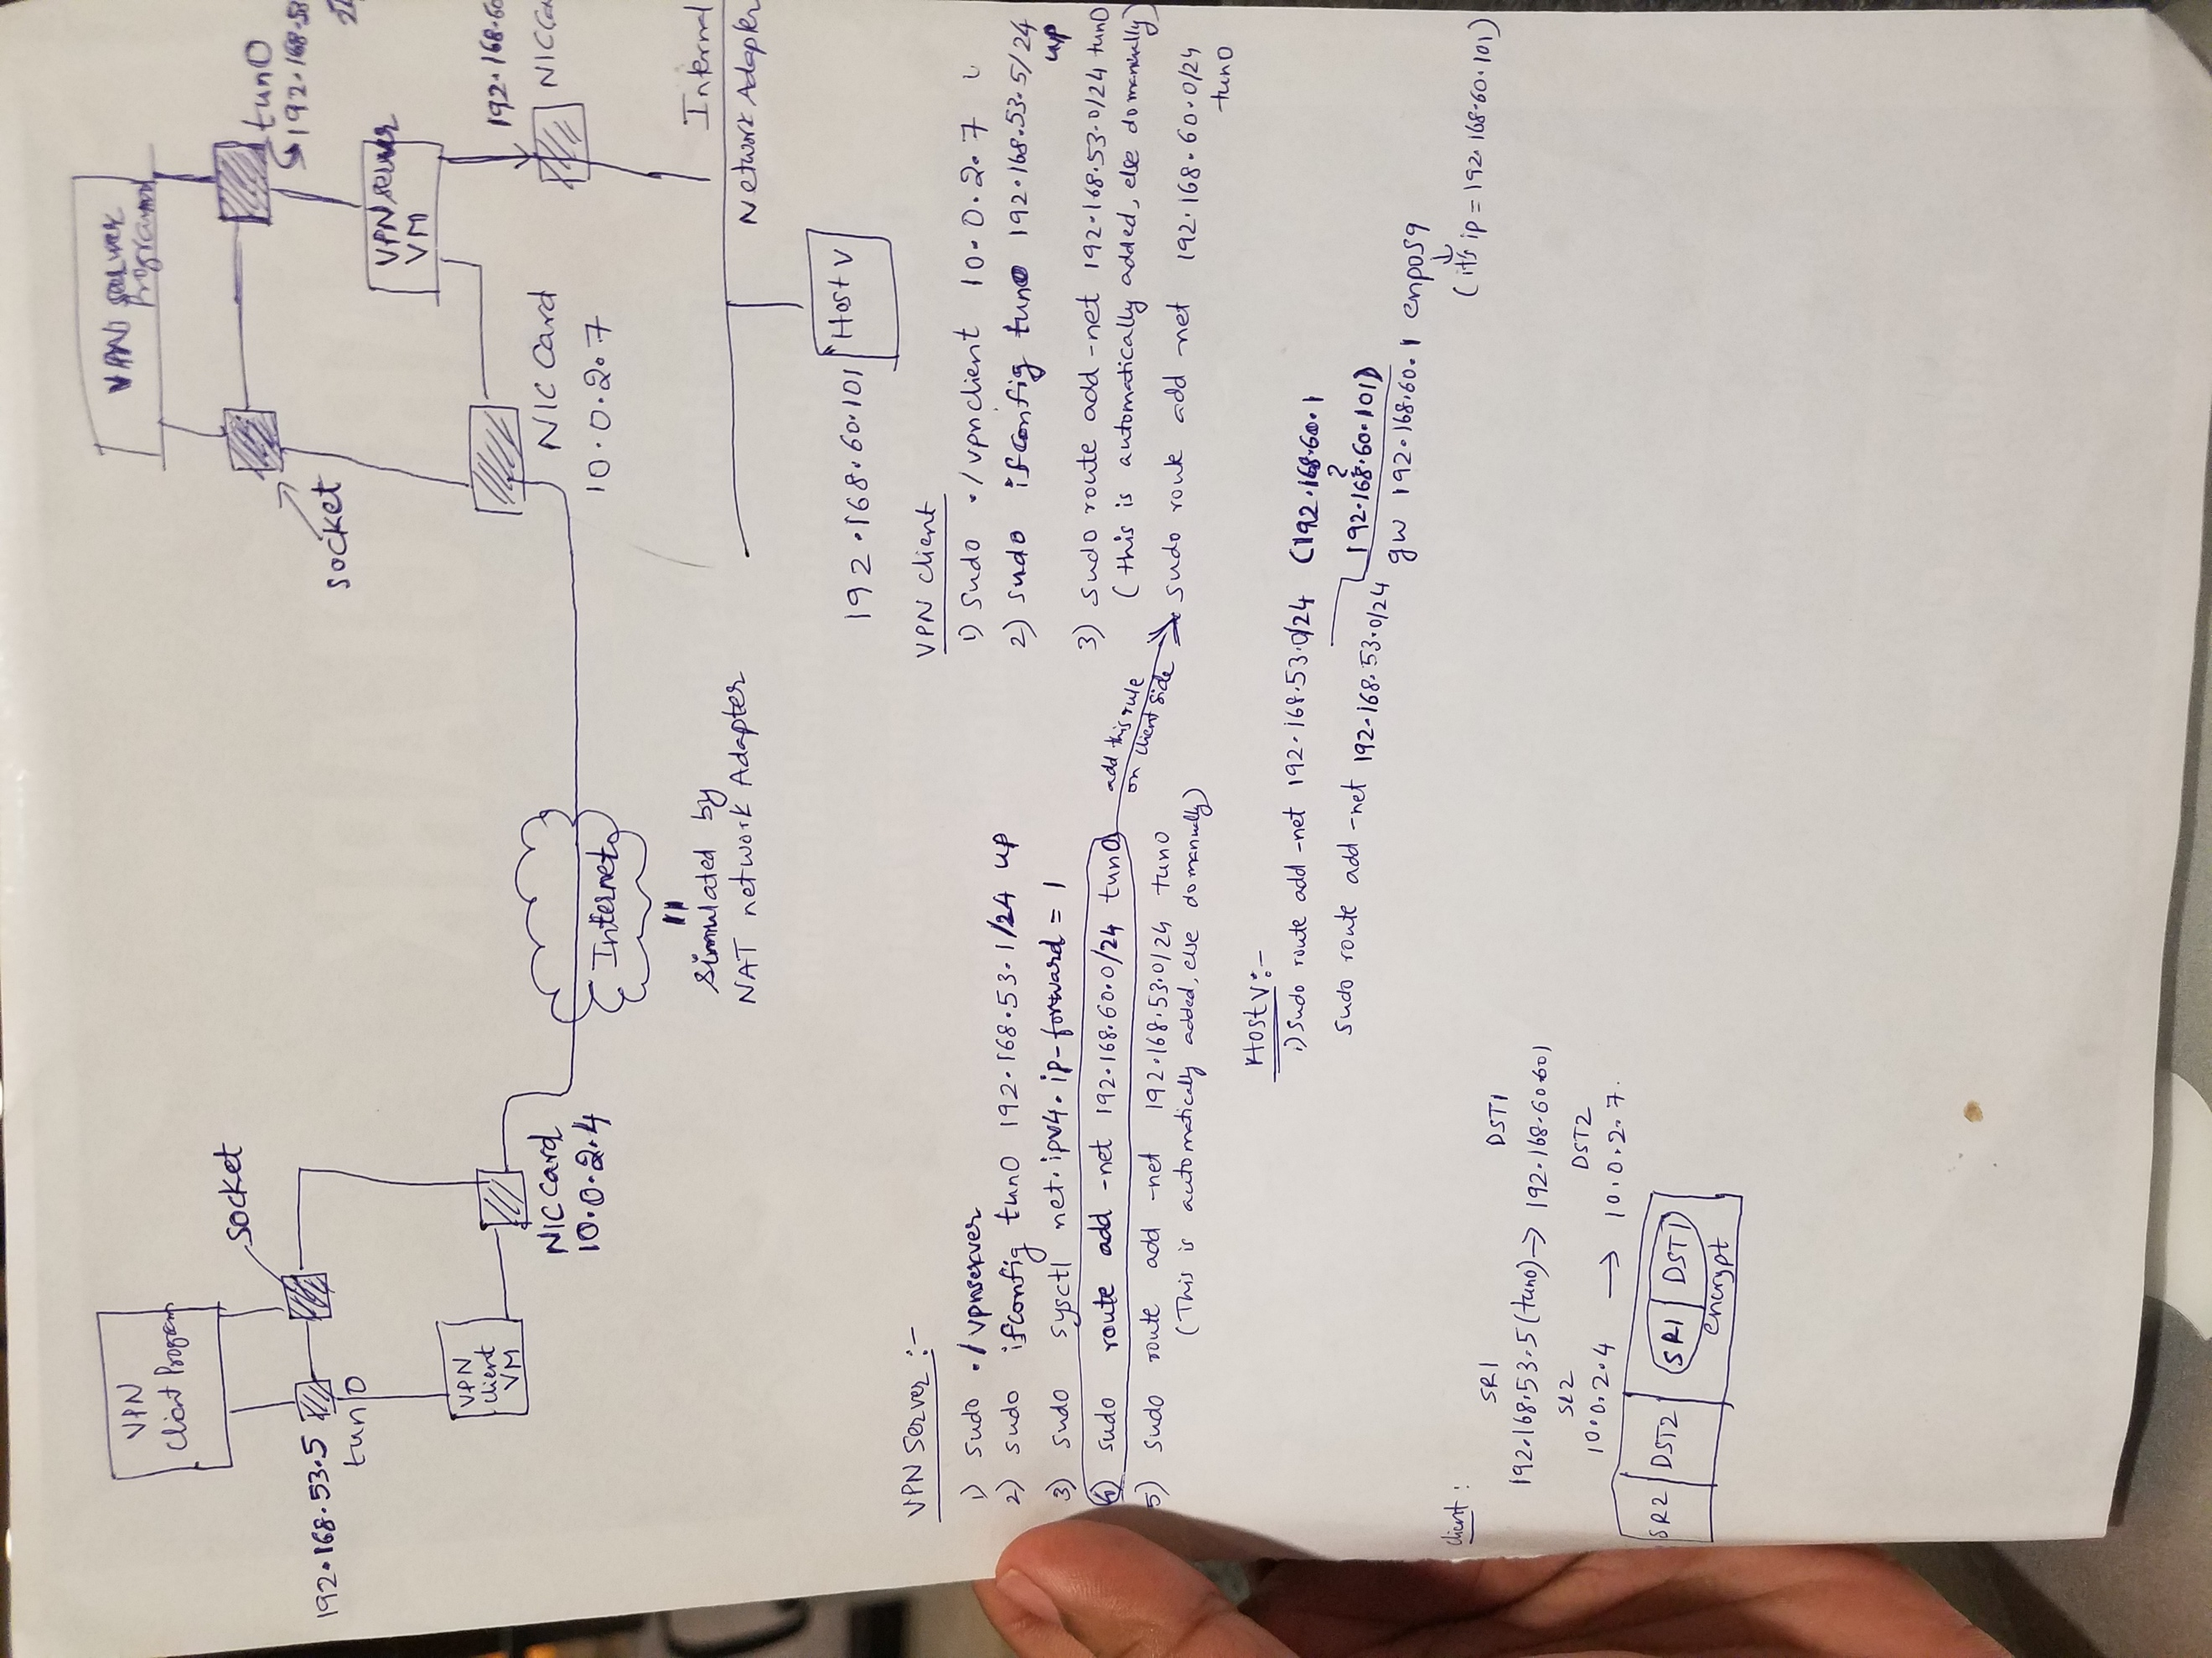 VPN
Client Program
socket
192.168.53.5
tun0
VPN
client
VM
NIC Card
10.0.2.4
Internet
Simulated by
NAT network Adapter
VPN server
Program
tun0
socket
VPN server
VM
NIC Card
10.0.2.7
Internal
Network Adapter
192.168.60.101
Host V
VPN Server:-
1) sudo ./vpnserver
2) sudo ifconfig tun0 192.168.53.1/24 up
3) sudo sysctl net.ipv4.ip-forward = 1
4) sudo route add -net 192.168.60.0/24 tun0
add this rule
on client side
5) sudo route add -net 192.168.53.0/24 tun0
(This is automatically added, else do manually)
VPN client
1) sudo ./vpnclient 10.0.2.7
2) sudo ifconfig tun0 192.168.53.5/24
up
3) sudo route add -net 192.168.53.0/24 tun0
(this is automatically added, else do manually)
sudo route add -net 192.168.60.0/24
tun0
Host V:-
1) sudo route add -net 192.168.53.0/24 (192.168.60.1
192.168.60.101)
sudo route add -net 192.168.53.0/24 gw 192.168.60.1 enp0s9
(its ip = 192.168.60.101)
client:
SR1 DST1
192.168.53.5 (tun0) → 192.168.60.60)
SR2 DST2
10.0.2.4 → 10.0.2.7.
SR2 DST2 SR1 DST1
encrypt